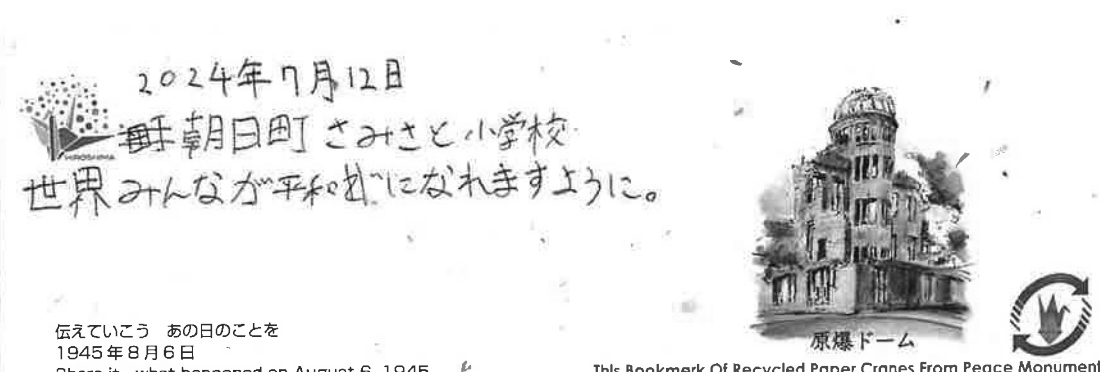 2024年7月12日
朝日町 さみさと小学校
世界みんなが平和になれますように。
HIROSHIMA
伝えていこう あの日のことを
1945年8月6日
Share it, what happened on August 6, 1945
原爆ドーム
This Bookmark Of Recycled Paper Cranes From Peace Monument